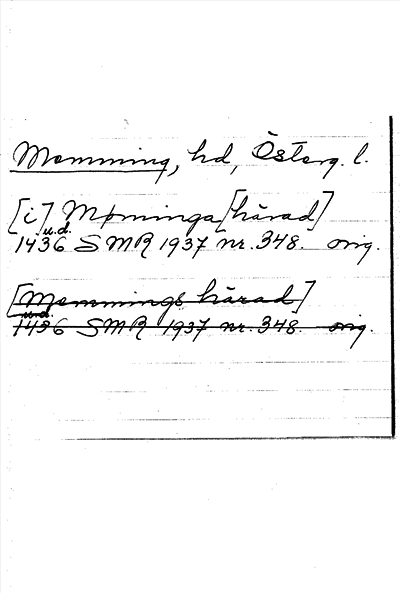 Memming, hd, Österg. l.
[i] Mpminga [härad]
u.d.
1436 SMR 1937 nr. 348. orig.
[Memmings härad]
u.d.
1436 SMR 1937 nr. 348. orig.